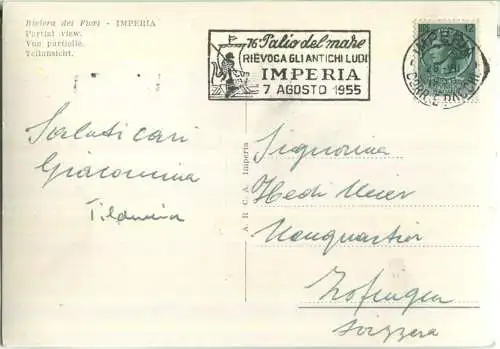 Riviera dei Fiori - IMPERIA
Partial view.
Vue partielle.
Teilansicht.
76° Palio del mare
RIEVOCA GLI ANTICHI LUDI
IMPERIA
7 AGOSTO 1955
12
IMPERIA
Saluti cari
Giacomina
A. R. C. A. Imperia
Signorina
Hedi Meier
Zofingen
Svizzera